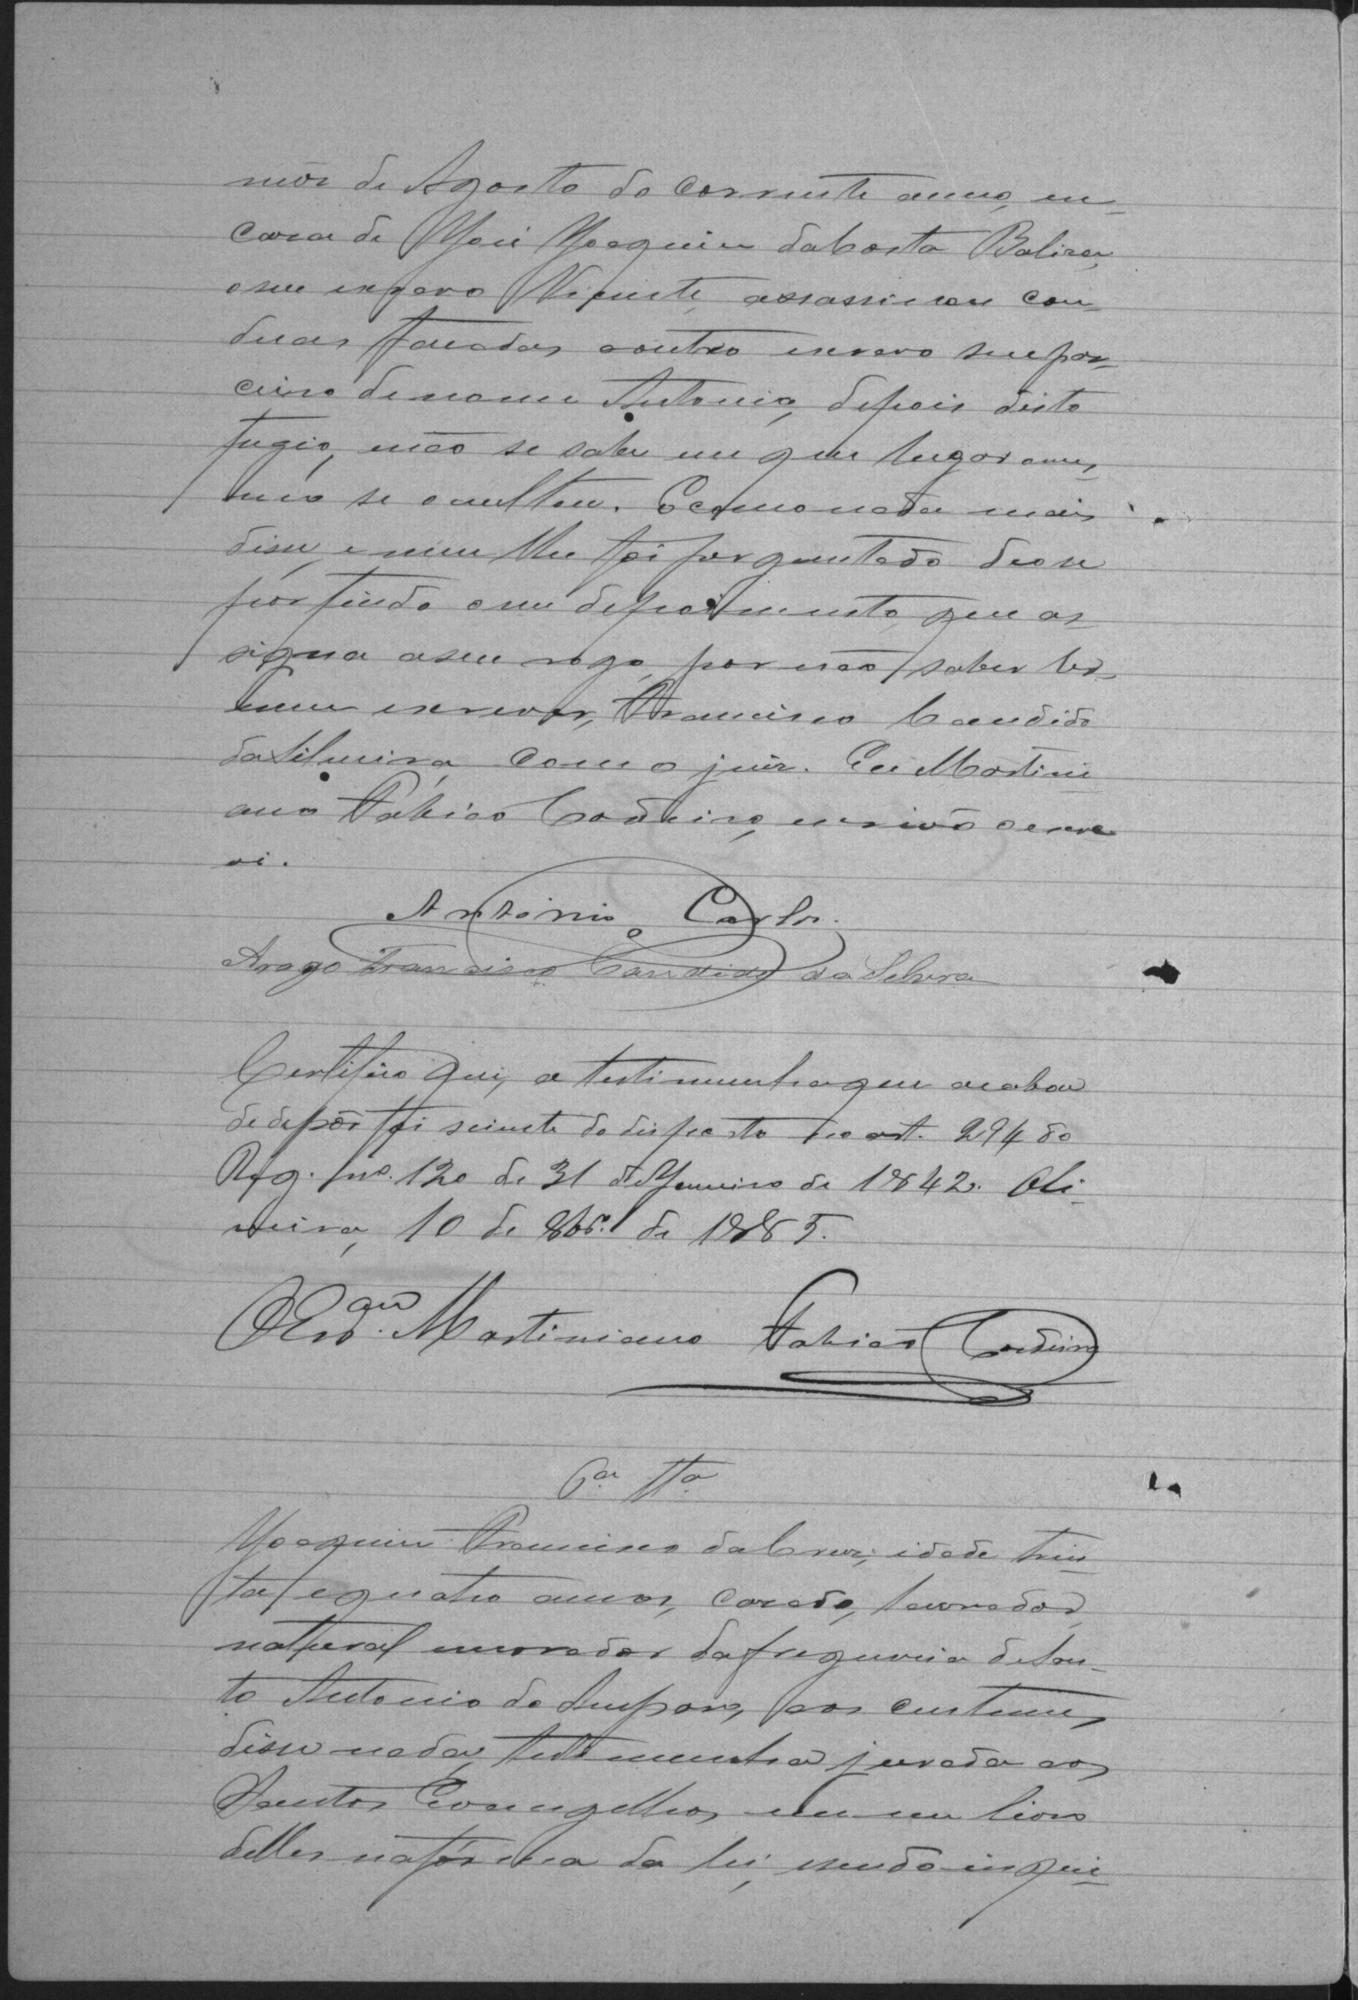 mês de Agosto do corrente anno, em
casa de José Joaquim da Costa Baliza,
o seu escravo Vicente, assassinou com
duas facadas a outro escravo seu par-
ceiro de nome Antonio, depois disto
fugio, não se sabe em que lugar o mes-
mo se occultou. E como nada mais
disse, e nem lhe foi perguntado deo se
por findo o seu depoimento, que as
signa a seu rogo, por não saber ler
nem escrever, Francisco Candido
da Silveira, com o juiz. Eu Martini
ano Fabião Cordeiro, escrivão o escre
vi.
Antonio Carlos
Arogo Francisco Candido da Silvera
Certifico que, a testimunha que acabou
de depôr foi sciente do disposto no art. 294 do
Reg. nº. 120 de 31 de Janeiro de 1842. Oli-
veira, 10 de de 1885.
O Escram. Martiniano Fabião Cordeiro
6ª Tta
Joaquim Francisco da Cruz, idade trin-
ta e quatro annos, casado, lavrador,
natural e morador da freguesia de San-
to Antonio do Amparo, aos custumes
disse nada, testimunha jurada aos
Santos Evangelhos, em um livro
delles na fórma da lei, sendo inqui-